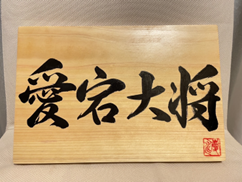 愛宕大将